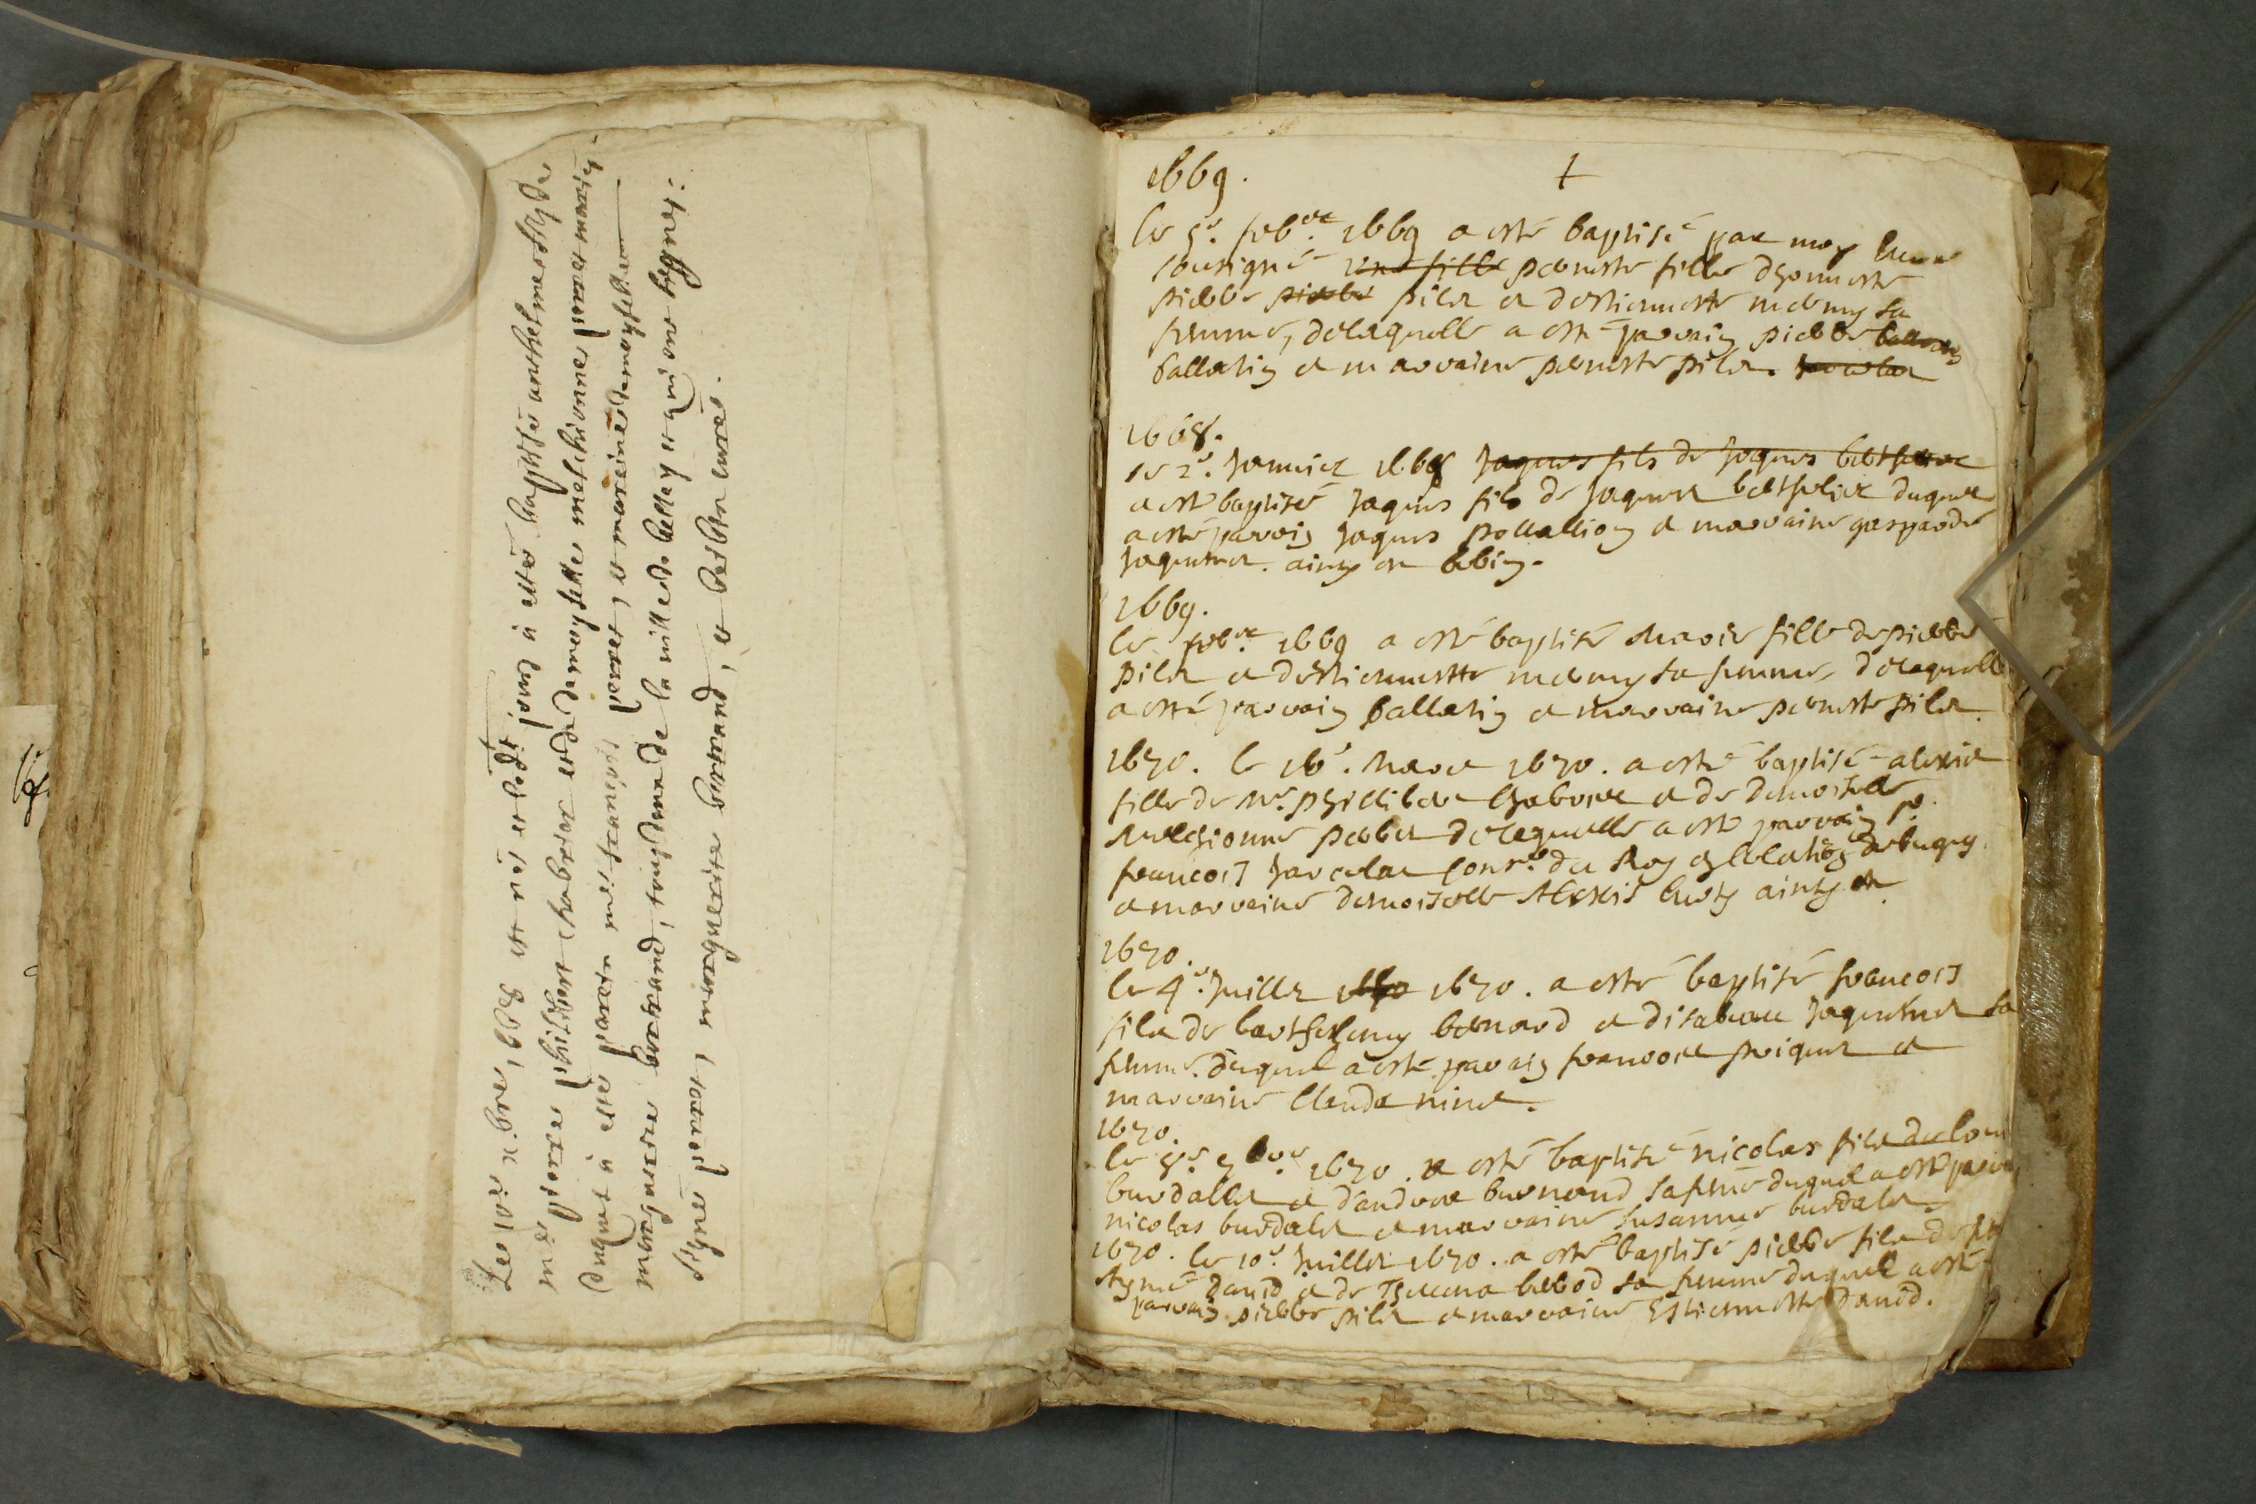 Le 10e x.bre, 1668 est nés et ledt jour à esté baptisé anthelme fils de
me pierre philibert chabrier et de damoyselle melchionne perret mariés
duquel à esté parein me françois perret, et mareine damoyselle
marguerite bertrand, tous deux de la ville de belley et qui ont signés:
signés perret, marguerite bertrand, et curé.
1669.
le 5e. feb.er 1669 a esté baptisé par moy
sousigné une fille pernette fille dhonneste
pierre pierre pilet et destiennette sa
femme, delaquelle a esté parrain pierre
ballatin et marraine pernette pilet.
1668.
le 2e. Janvier 1668 Jaques fils de Jaques berthelier
a esté baptisé Jaques fils de Jaques berthelier duquel
a esté parrain Jaques pollallion et marraine gasparde
Jaquemet. ainsy est
1669.
le feb.er 1669 a esté baptisé Marie fille de pierre
pilet et destiennette sa femme, delaquelle
a esté parrain ballatin et marraine pernette pilet.
1670. le 16e. Mars 1670. a esté baptisé alexie
fille de Mr. philibert Chabrier et de demoiselle
Melchionne perret delaquelle a esté parrain Sr.
françois Jarcelat Consr. du Roy de bugey
et marraine demoiselle Alexis ainsy est
1670.
le 4e. Juillet 1670. a esté baptisé françois
fils de barthelemy bernard et disabeau Jaquemet sa
femme. duquel a esté parrain françois et
marraine Clauda ninet.
1670.
le 8e. 1670. a esté baptisé nicolas fils de
burdallet et dandrea burnand sa feme duquel a esté parrain
nicolas burdalet et marraine susanne burdalet
1670. le 10e. Juillet 1670. a esté baptisé pierre fils de
Aymé david et de sa femme duquel a esté
parrain pierre pilet et marraine Estiennette david.